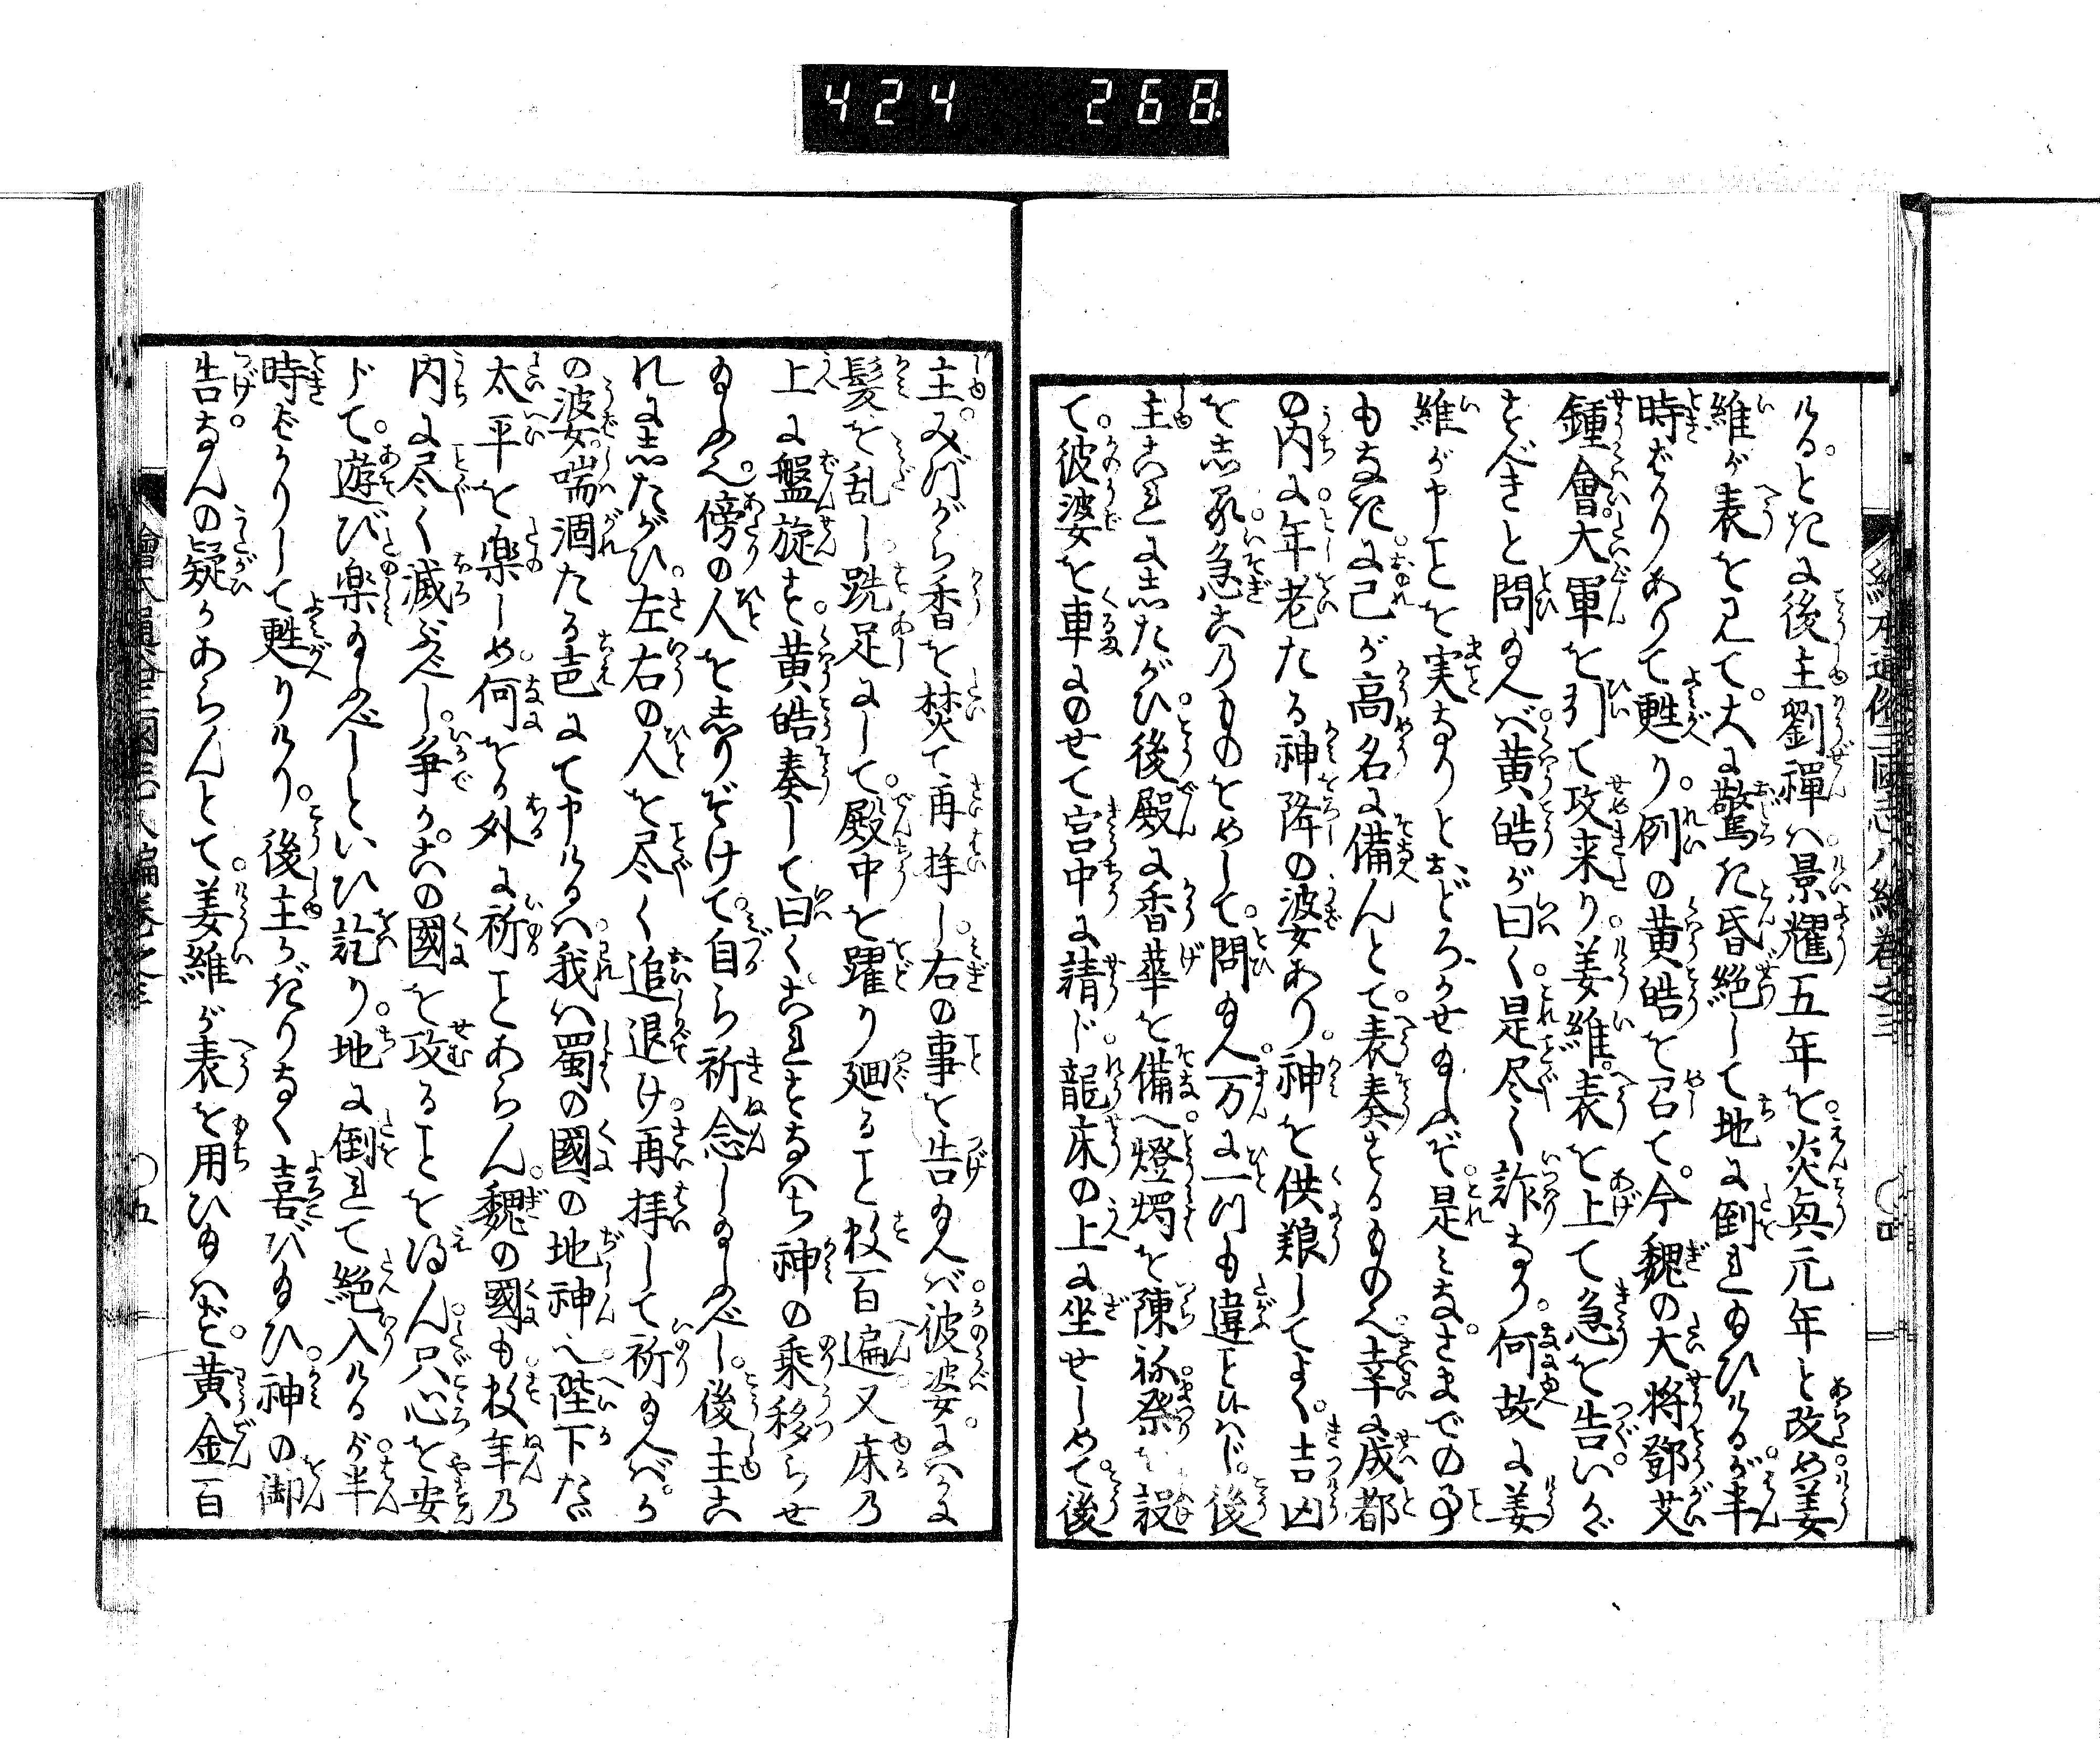 424 268
ける。ときに後主劉禪ハ景耀五年を。炎興元年と改め姜
維が表を見て。大に驚き昏絶して地に倒れ給ひけるが半
時ばかりありて甦り。例の黄皓を召て。今魏の大将鄧艾
鍾會。大軍を引て攻来り。姜維。表を上て急を告。いかゞ
すべきと問給へバ。黄皓が曰く。是尽く詐なり。何故に姜
維が申ことを実なりとおどろかせ給ふぞ。是みな。さまでの事
もなきに。己が高名に備んとて。表奏するものへ。幸に成都
の内に。年老たる神降の婆あり。神を供粮してよく。吉凶
をしる。急このものをめして。問給へ。万に一ツも違ことハじ。後
主これにしたがひ。後殿に香華を備へ。燈燭を陳祢。祭を設
て。彼婆を車にのせて宮中に請じ。龍床の上に坐せしめて。後
主。みづから香を焚て。再拝し。右の事を告給へバ。彼婆。にハかに
髪を乱し。跣足にして。殿中を躍り廻ること数百遍。又床の
上に盤旋す。黄皓奏して曰く。これすなハち神の乗移らせ
給ふへ。傍の人をしりぞけて。自ら祈念し給ふべし。後主こ
れにしたがひ。左右の人を尽く追退け。再拝して祈給へバ。か
の婆喘涸たる声にて申けるハ。我ハ蜀の國の地神へ。陛下たゞ
太平を楽しめ。何をか外に祈ことあらん。魏の國も。数年の
内に尽く滅ぶべし。争か。この國を攻ることを得ん。只心を安
じて。遊び楽給ふべしといひ訖り。地に倒れて絶入けるが。半
時ばかりして甦りけり。後主かぎりなく喜び給ひ。神の御
告。なんの疑かあらんとて。姜維が表を用ひ給ハず。黄金一百